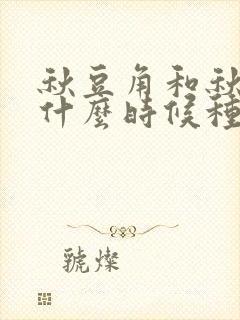 秋豆角和秋
什麼時候種
虢燦